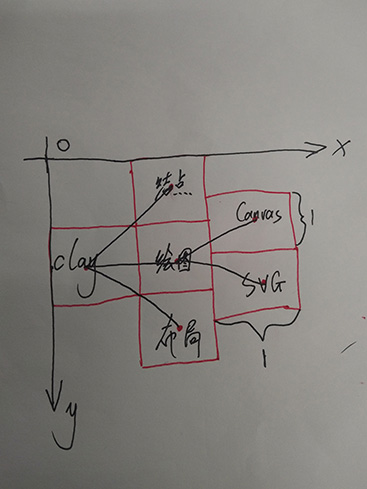 O
x
结点
Canvas
1
clay
绘图
SVG
布局
1
y